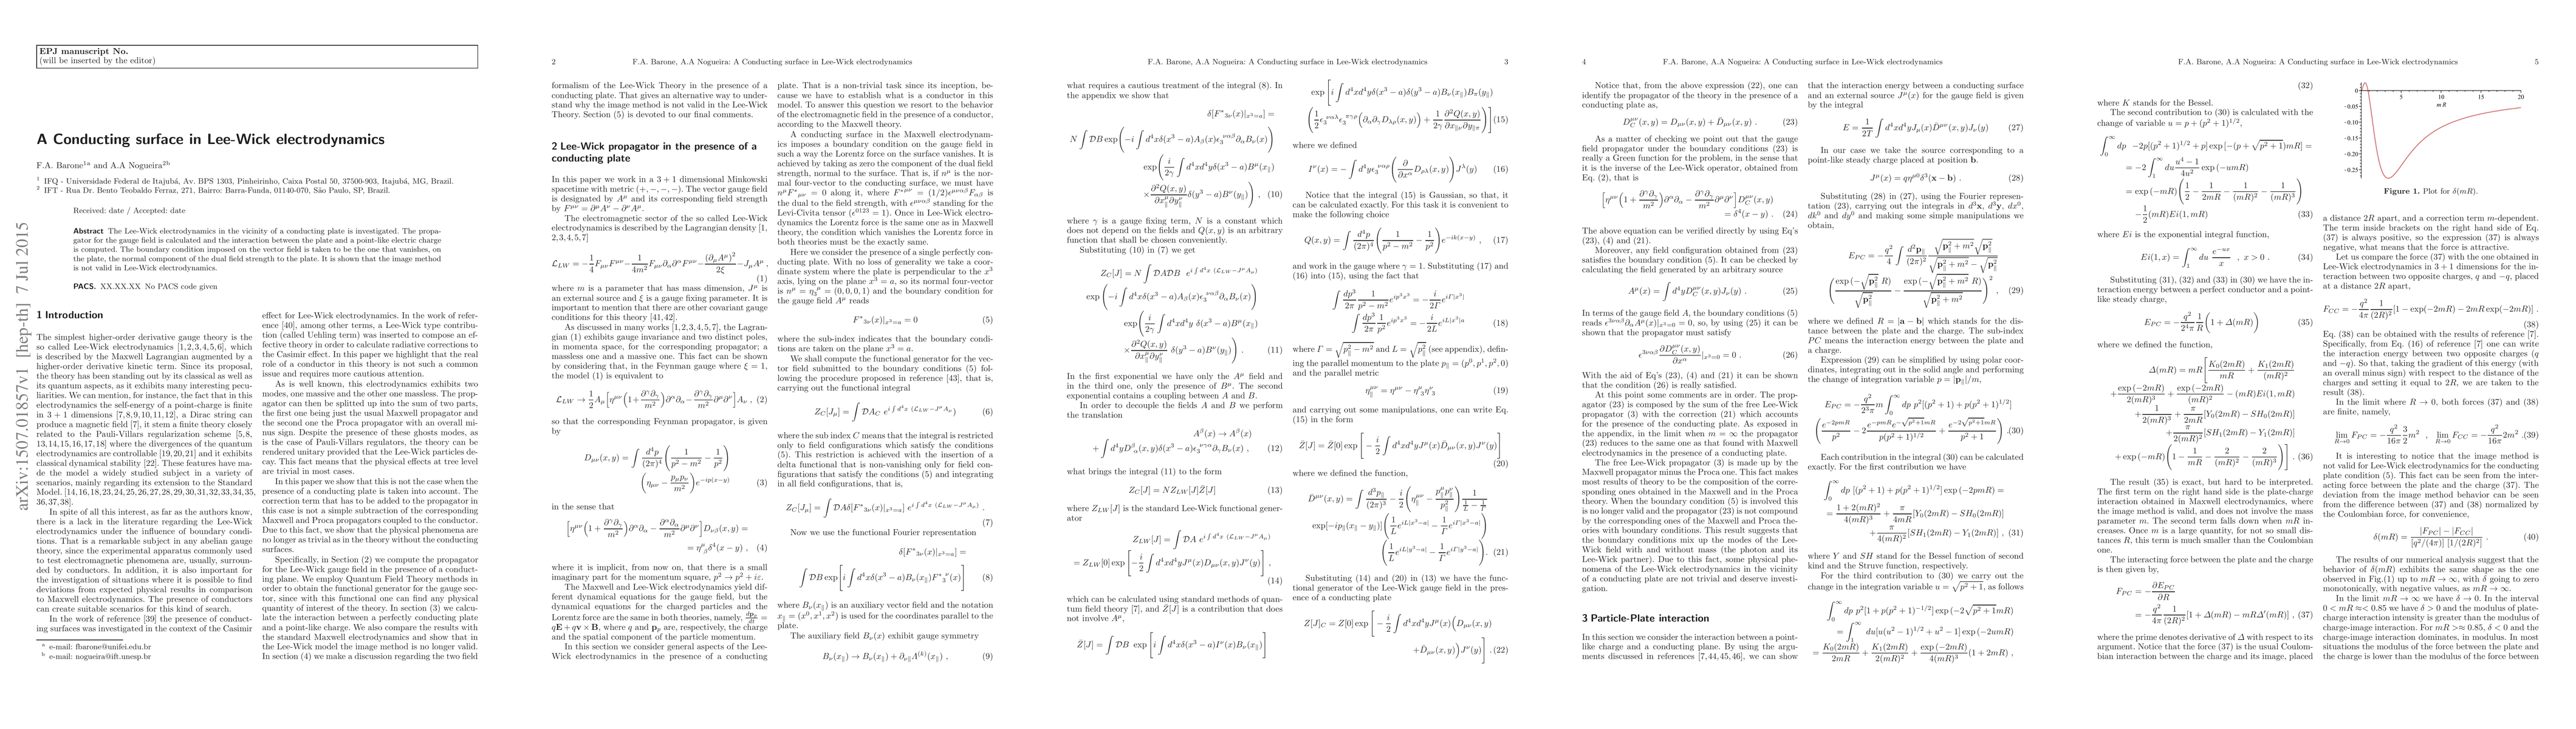 EPJ manuscript No.
(will be inserted by the editor)
arXiv:1507.01857v1 [hep-th] 7 Jul 2015
A Conducting surface in Lee-Wick electrodynamics
F.A. Barone1a and A.A Nogueira2b
1 IFQ - Universidade Federal de Itajubá, Av. BPS 1303, Pinheirinho, Caixa Postal 50, 37500-903, Itajubá, MG, Brazil.
2 IFT - Rua Dr. Bento Teobaldo Ferraz, 271, Bairro: Barra-Funda, 01140-070, São Paulo, SP, Brazil.
Received: date / Accepted: date
Abstract The Lee-Wick electrodynamics in the vicinity of a conducting plate is investigated. The propa-
gator for the gauge field is calculated and the interaction between the plate and a point-like electric charge
is computed. The boundary condition imposed on the vector field is taken to be the one that vanishes, on
the plate, the normal component of the dual field strength to the plate. It is shown that the image method
is not valid in Lee-Wick electrodynamics.
PACS. XX.XX.XX No PACS code given
1 Introduction
The simplest higher-order derivative gauge theory is the
so called Lee-Wick electrodynamics [1,2,3,4,5,6], which
is described by the Maxwell Lagrangian augmented by a
higher-order derivative kinetic term. Since its proposal,
the theory has been standing out by its classical as well as
its quantum aspects, as it exhibits many interesting pecu-
liarities. We can mention, for instance, the fact that in this
electrodynamics the self-energy of a point-charge is finite
in 3 + 1 dimensions [7,8,9,10,11,12], a Dirac string can
produce a magnetic field [7], it stem a finite theory closely
related to the Pauli-Villars regularization scheme [5,8,
13,14,15,16,17,18] where the divergences of the quantum
electrodynamics are controllable [19,20,21] and it exhibits
classical dynamical stability [22]. These features have ma-
de the model a widely studied subject in a variety of
scenarios, mainly regarding its extension to the Standard
Model. [14,16,18,23,24,25,26,27,28,29,30,31,32,33,34,35,
36,37,38].
In spite of all this interest, as far as the authors know,
there is a lack in the literature regarding the Lee-Wick
electrodynamics under the influence of boundary condi-
tions. That is a remarkable subject in any abelian gauge
theory, since the experimental apparatus commonly used
to test electromagnetic phenomena are, usually, surroun-
ded by conductors. In addition, it is also important for
the investigation of situations where it is possible to find
deviations from expected physical results in comparison
to Maxwell electrodynamics. The presence of conductors
can create suitable scenarios for this kind of search.
In the work of reference [39] the presence of conduct-
ing surfaces was investigated in the context of the Casimir
a e-mail: fbarone@unifei.edu.br
b e-mail: nogueira@ift.unesp.br
effect for Lee-Wick electrodynamics. In the work of refer-
ence [40], among other terms, a Lee-Wick type contribu-
tion (called Uehling term) was inserted to compose an ef-
fective theory in order to calculate radiative corrections to
the Casimir effect. In this paper we highlight that the real
role of a conductor in this theory is not such a common
issue and requires more cautious attention.
As is well known, this electrodynamics exhibits two
modes, one massive and the other one massless. The prop-
agator can be splitted up into the sum of two parts,
the first one being just the usual Maxwell propagator and
the second one the Proca propagator with an overall mi-
nus sign. Despite the presence of these ghosts modes, as
is the case of Pauli-Villars regulators, the theory can be
rendered unitary provided that the Lee-Wick particles de-
cay. This fact means that the physical effects at tree level
are trivial in most cases.
In this paper we show that this is not the case when the
presence of a conducting plate is taken into account. The
correction term that has to be added to the propagator in
this case is not a simple subtraction of the corresponding
Maxwell and Proca propagators coupled to the conductor.
Due to this fact, we show that the physical phenomena are
no longer as trivial as in the theory without the conducting
surfaces.
Specifically, in Section (2) we compute the propagator
for the Lee-Wick gauge field in the presence of a conduct-
ing plane. We employ Quantum Field Theory methods in
order to obtain the functional generator for the gauge sec-
tor, since with this functional one can find any physical
quantity of interest of the theory. In section (3) we calcu-
late the interaction between a perfectly conducting plate
and a point-like charge. We also compare the results with
the standard Maxwell electrodynamics and show that in
the Lee-Wick model the image method is no longer valid.
In section (4) we make a discussion regarding the two field
2 F.A. Barone, A.A Nogueira: A Conducting surface in Lee-Wick electrodynamics
formalism of the Lee-Wick Theory in the presence of a
conducting plate. That gives an alternative way to under-
stand why the image method is not valid in the Lee-Wick
Theory. Section (5) is devoted to our final comments.
2 Lee-Wick propagator in the presence of a
conducting plate
In this paper we work in a 3 + 1 dimensional Minkowski
spacetime with metric (+, −, −, −). The vector gauge field
is designated by Aμ and its corresponding field strength
by Fμν = ∂μAν − ∂νAμ.
The electromagnetic sector of the so called Lee-Wick
electrodynamics is described by the Lagrangian density [1,
2,3,4,5,7]
L_LW = −1/4 FμνFμν − 1/4m² Fμν∂α∂αFμν − (∂μAμ)²/2ξ − JμAμ ,
(1)
where m is a parameter that has mass dimension, Jμ is
an external source and ξ is a gauge fixing parameter. It is
important to mention that there are other covariant gauge
conditions for this theory [41,42].
As discussed in many works [1,2,3,4,5,7], the Lagran-
gian (1) exhibits gauge invariance and two distinct poles,
in momenta space, for the corresponding propagator; a
massless one and a massive one. This fact can be shown
by considering that, in the Feynman gauge where ξ = 1,
the model (1) is equivalent to
L_LW → 1/2 Aμ[ημν(1 + ∂γ∂γ/m²)∂α∂α − ∂γ∂γ/m² ∂μ∂ν]Aν , (2)
so that the corresponding Feynman propagator, is given
by
Dμν(x, y) = ∫ d⁴p/(2π)⁴ (1/(p² − m²) − 1/p²)
(ημν − pμpν/m²)e^−ip(x−y) (3)
in the sense that
[ημν(1 + ∂γ∂γ/m²)∂α∂α − ∂α∂α/m² ∂μ∂ν]Dνβ(x, y) =
= ημβ δ⁴(x − y) , (4)
where it is implicit, from now on, that there is a small
imaginary part for the momentum square, p² → p² + iε.
The Maxwell and Lee-Wick electrodynamics yield dif-
ferent dynamical equations for the gauge field, but the
dynamical equations for the charged particles and the
Lorentz force are the same in both theories, namely, dp/dt =
qE + qv × B, where q and p are, respectively, the charge
and the spatial component of the particle momentum.
In this section we consider general aspects of the Lee-
Wick electrodynamics in the presence of a conducting
plate. That is a non-trivial task since its inception, be-
cause we have to establish what is a conductor in this
model. To answer this question we resort to the behavior
of the electromagnetic field in the presence of a conductor,
according to the Maxwell theory.
A conducting surface in the Maxwell electrodynam-
ics imposes a boundary condition on the gauge field in
such a way the Lorentz force on the surface vanishes. It is
achieved by taking as zero the component of the dual field
strength, normal to the surface. That is, if nμ is the nor-
mal four-vector to the conducting surface, we must have
nμF*μν = 0 along it, where F*μν = (1/2)εμναβFαβ is
the dual to the field strength, with εμναβ standing for the
Levi-Civita tensor (ε0123 = 1). Once in Lee-Wick electro-
dynamics the Lorentz force is the same one as in Maxwell
theory, the condition which vanishes the Lorentz force in
both theories must be the exactly same.
Here we consider the presence of a single perfectly con-
ducting plate. With no loss of generality we take a coor-
dinate system where the plate is perpendicular to the x³
axis, lying on the plane x³ = a, so its normal four-vector
is nμ = ημ3 = (0, 0, 0, 1) and the boundary condition for
the gauge field Aμ reads
F*3ν(x)|x³=a = 0 (5)
where the sub-index indicates that the boundary condi-
tions are taken on the plane x³ = a.
We shall compute the functional generator for the vec-
tor field submitted to the boundary conditions (5) fol-
lowing the procedure proposed in reference [43], that is,
carrying out the functional integral
Z_C[Jμ] = ∫ DA_C e^{i∫d⁴x (L_LW−JμAμ)} (6)
where the sub index C means that the integral is restricted
only to field configurations which satisfy the conditions
(5). This restriction is achieved with the insertion of a
delta functional that is non-vanishing only for field con-
figurations that satisfy the conditions (5) and integrating
in all field configurations, that is,
Z_C[Jμ] = ∫ DAδ[F*3ν(x)|x³=a] e^{i∫d⁴x (L_LW−JμAμ)} .
(7)
Now we use the functional Fourier representation
δ[F*3ν(x)|x³=a] =
∫ DB exp[i ∫ d⁴xδ(x³ − a)Bν(x∥)F*3ν(x)] (8)
where Bν(x∥) is an auxiliary vector field and the notation
x∥ = (x⁰, x¹, x²) is used for the coordinates parallel to the
plate.
The auxiliary field Bν(x) exhibit gauge symmetry
Bν(x∥) → Bν(x∥) + ∂ν∥Λ(x∥) , (9)
F.A. Barone, A.A Nogueira: A Conducting surface in Lee-Wick electrodynamics 3
what requires a cautious treatment of the integral (8). In
the appendix we show that
δ[F*3ν(x)|x³=a] =
N ∫ DB exp(−i ∫ d⁴xδ(x³ − a)Aβ(x)ε3ναβ∂αBν(x))
exp(i/2γ ∫ d⁴xd⁴yδ(x³ − a)Bμ(x∥)
×∂²Q(x, y)/∂xμ∥∂yν∥ δ(y³ − a)Bν(y∥)) , (10)
where γ is a gauge fixing term, N is a constant which
does not depend on the fields and Q(x, y) is an arbitrary
function that shall be chosen conveniently.
Substituting (10) in (7) we get
Z_C[J] = N ∫ DADB e^{i∫d⁴x (L_LW−JμAμ)}
exp(−i ∫ d⁴xδ(x³ − a)Aβ(x)ε3ναβ∂αBν(x))
exp(i/2γ ∫ d⁴xd⁴y δ(x³ − a)Bμ(x∥)
×∂²Q(x, y)/∂xμ∥∂yν∥ δ(y³ − a)Bν(y∥)) . (11)
In the first exponential we have only the Aμ field and
in the third one, only the presence of Bμ. The second
exponential contains a coupling between A and B.
In order to decouple the fields A and B we perform
the translation
Aβ(x) → Aβ(x)
+ ∫ d⁴yDβα(x, y)δ(y³ − a)ε3νγα∂γBν(y) , (12)
what brings the integral (11) to the form
Z_C[J] = NZ_LW[J]Z̄[J] (13)
where Z_LW[J] is the standard Lee-Wick functional gener-
ator
Z_LW[J] = ∫ DA e^{i∫d⁴x (L_LW−JμAμ)}
= Z_LW[0] exp[−i/2 ∫ d⁴xd⁴yJμ(x)Dμν(x, y)Jν(y)] ,
(14)
which can be calculated using standard methods of quan-
tum field theory [7], and Z̄[J] is a contribution that does
not involve Aμ,
Z̄[J] = ∫ DB exp[i ∫ d⁴xδ(x³ − a)Iν(x)Bν(x∥)]
exp[i ∫ d⁴xd⁴yδ(x³ − a)δ(y³ − a)Bν(x∥)Bπ(y∥)
(1/2 ε3ναλε3πγρ(∂α∂γDλρ(x, y)) + 1/2γ ∂²Q(x, y)/∂x∥ν∂y∥π)](15)
where we defined
Iν(x) = − ∫ d⁴yε3ναρ(∂/∂xα Dρλ(x, y))Jλ(y) (16)
Notice that the integral (15) is Gaussian, so that, it
can be calculated exactly. For this task it is convenient to
make the following choice
Q(x, y) = ∫ d⁴p/(2π)⁴ (1/(p² − m²) − 1/p²)e^−ik(x−y) , (17)
and work in the gauge where γ = 1. Substituting (17) and
(16) into (15), using the fact that
∫ dp³/2π 1/(p² − m²) e^{ip³x³} = −i/2Γ e^{iΓ|x³|}
∫ dp³/2π 1/p² e^{ip³x³} = −i/2L e^{iL|x³|a} (18)
where Γ = √(p∥² − m²) and L = √p∥² (see appendix), defin-
ing the parallel momentum to the plate p∥ = (p⁰, p¹, p², 0)
and the parallel metric
ημν∥ = ημν − ημ3ην3 (19)
and carrying out some manipulations, one can write Eq.
(15) in the form
Z̄[J] = Z̄[0] exp[−i/2 ∫ d⁴xd⁴yJμ(x)D̄μν(x, y)Jν(y)]
(20)
where we defined the function,
D̄μν(x, y) = ∫ d³p∥/(2π)³ − i/2(ημν∥ − pμ∥pν∥/p∥²) 1/(1/L − 1/Γ)
exp[−ip∥(x∥ − y∥)](1/L e^{iL|x³−a|} − 1/Γ e^{iΓ|x³−a|})
(1/L e^{iL|y³−a|} − 1/Γ e^{iΓ|y³−a|}) . (21)
Substituting (14) and (20) in (13) we have the func-
tional generator of the Lee-Wick gauge field in the pres-
ence of a conducting plate
Z[J]_C = Z[0] exp[−i/2 ∫ d⁴xd⁴yJμ(x)(Dμν(x, y)
+D̄μν(x, y))Jν(y)] .(22)
4 F.A. Barone, A.A Nogueira: A Conducting surface in Lee-Wick electrodynamics
Notice that, from the above expression (22), one can
identify the propagator of the theory in the presence of a
conducting plate as,
Dμν_C(x, y) = Dμν(x, y) + D̄μν(x, y) . (23)
As a matter of checking we point out that the gauge
field propagator under the boundary conditions (23) is
really a Green function for the problem, in the sense that
it is the inverse of the Lee-Wick operator, obtained from
Eq. (2), that is
[ημν(1 + ∂γ∂γ/m²)∂α∂α − ∂γ∂γ/m² ∂μ∂ν]Dμν_C(x, y)
= δ⁴(x − y) . (24)
The above equation can be verified directly by using Eq's
(23), (4) and (21).
Moreover, any field configuration obtained from (23)
satisfies the boundary condition (5). It can be checked by
calculating the field generated by an arbitrary source
Aμ(x) = ∫ d⁴yDμν_C(x, y)Jν(y) . (25)
In terms of the gauge field A, the boundary conditions (5)
reads ε3ναμ∂αAμ(x)|x³=0 = 0, so, by using (25) it can be
shown that the propagator must satisfy
ε3ναμ ∂Dμν_C(x, y)/∂xα|x³=0 = 0 . (26)
With the aid of Eq's (23), (4) and (21) it can be shown
that the condition (26) is really satisfied.
At this point some comments are in order. The prop-
agator (23) is composed by the sum of the free Lee-Wick
propagator (3) with the correction (21) which accounts
for the presence of the conducting plate. As exposed in
the appendix, in the limit when m = ∞ the propagator
(23) reduces to the same one as that found with Maxwell
electrodynamics in the presence of a conducting plate.
The free Lee-Wick propagator (3) is made up by the
Maxwell propagator minus the Proca one. This fact makes
most results of the theory to be the composition of the cor-
responding ones obtained in the Maxwell and in the Proca
theory. When the boundary condition (5) is involved this
is no longer valid and the propagator (23) is not compound
by the corresponding ones of the Maxwell and Proca the-
ories with boundary conditions. This result suggests that
the boundary conditions mix up the modes of the Lee-
Wick field with and without mass (the photon and its
Lee-Wick partner). Due to this fact, some physical phe-
nomena of the Lee-Wick electrodynamics in the vicinity
of a conducting plate are not trivial and deserve investi-
gation.
3 Particle-Plate interaction
In this section we consider the interaction between a point-
like charge and a conducting plane. By using the argu-
ments discussed in references [7,44,45,46], we can show
that the interaction energy between a conducting surface
and an external source Jμ(x) for the gauge field is given
by the integral
E = 1/2T ∫ d⁴xd⁴yJμ(x)D̄μν(x, y)Jν(y) (27)
In our case we take the source corresponding to a
point-like steady charge placed at position b.
Jμ(x) = qημ0δ³(x − b) . (28)
Substituting (28) in (27), using the Fourier represen-
tation (23), carrying out the integrals in d³x, d³y, dx⁰,
dk⁰ and dy⁰ and making some simple manipulations we
obtain,
E_PC = −q²/4 ∫ d²p∥/(2π)² √(p∥² + m²)√p∥²/(√(p∥² + m²) − √p∥²)
(exp(−√p∥² R)/√p∥² − exp(−√(p∥² + m²) R)/√(p∥² + m²))² , (29)
where we defined R = |a − b| which stands for the dis-
tance between the plate and the charge. The sub-index
PC means the interaction energy between the plane and
a charge.
Expression (29) can be simplified by using polar coor-
dinates, integrating out in the solid angle and performing
the change of integration variable p = |p∥|/m,
E_PC = −q²/2³π m ∫₀^∞ dp p²[(p² + 1) + p(p² + 1)^1/2]
(e^−2pmR/p² − 2e^−pmRe^−√(p²+1)mR/p(p² + 1)^1/2 + e^−2√(p²+1)mR/(p² + 1)) .(30)
Each contribution in the integral (30) can be calculated
exactly. For the first contribution we have
∫₀^∞ dp [(p² + 1) + p(p² + 1)^1/2] exp(−2pmR) =
= (1 + 2(mR)²)/4(mR)³ + π/4mR [Y₀(2mR) − SH₀(2mR)]
+ π/4(mR)² [SH₁(2mR) − Y₁(2mR)] , (31)
where Y and SH stand for the Bessel function of second
kind and the Struve function, respectively.
For the third contribution to (30) we carry out the
change in the integration variable u = √(p² + 1), as follows
∫₀^∞ dp p²[1 + p(p² + 1)^−1/2] exp(−2√(p²+1)mR)
= ∫₁^∞ du[u(u² − 1)^1/2 + u² − 1] exp(−2umR)
= K₀(2mR)/2mR + K₁(2mR)/2(mR)² + exp(−2mR)/4(mR)³ (1 + 2mR) ,
F.A. Barone, A.A Nogueira: A Conducting surface in Lee-Wick electrodynamics 5
(32)
where K stands for the Bessel.
The second contribution to (30) is calculated with the
change of variable u = p + (p² + 1)^1/2,
∫₀^∞ dp −2p[(p² + 1)^1/2 + p] exp[−(p + √(p² + 1)mR] =
= −2 ∫₁^∞ du (u⁴ − 1)/4u² exp(−umR)
= exp(−mR)(1/2 − 1/2mR − 1/(mR)² − 1/(mR)³)
−1/2(mR)Ei(1, mR) (33)
where Ei is the exponential integral function,
Ei(1, x) = ∫₁^∞ du e^−ux/x , x > 0 . (34)
Substituting (31), (32) and (33) in (30) we have the in-
teraction energy between a perfect conductor and a point-
like steady charge,
E_PC = −q²/2⁴π 1/R (1 + Δ(mR)) (35)
where we define the function,
Δ(mR) = mR[K₀(2mR)/mR + K₁(2mR)/(mR)²
+exp(−2mR)/2(mR)³ + exp(−2mR)/(mR)² − (mR)Ei(1, mR)
+1/2(mR)³ + π/2mR [Y₀(2mR) − SH₀(2mR)]
+π/2(mR)² [SH₁(2mR) − Y₁(2mR)]
+ exp(−mR)(1 − 1/mR − 2/(mR)² − 2/(mR)³)] . (36)
The result (35) is exact, but hard to be interpreted.
The first term on the right hand side is the plate-charge
interaction obtained in Maxwell electrodynamics, where
the image method is valid, and does not involve the mass
parameter m. The second term falls down when mR in-
creases. Once m is a large quantity, for not so small dis-
tances R, this term is much smaller than the Coulombian
one.
The interacting force between the plate and the charge
is then given by,
F_PC = −∂E_PC/∂R
= −q²/4π 1/(2R)² [1 + Δ(mR) − mRΔ′(mR)] , (37)
where the prime denotes derivative of Δ with respect to its
argument. Notice that the force (37) is the usual Coulom-
bian interaction between the charge and its image, placed
0
5
10
15
20
mR
−0.05
−0.10
−0.15
−0.20
−0.25
Figure 1. Plot for δ(mR).
a distance 2R apart, and a correction term m-dependent.
The term inside brackets on the right hand side of Eq.
(37) is always positive, so the expression (37) is always
negative, what means that the force is attractive.
Let us compare the force (37) with the one obtained in
Lee-Wick electrodynamics in 3 + 1 dimensions for the in-
teraction between two opposite charges, q and −q, placed
at a distance 2R apart,
F_CC = −q²/4π 1/(2R)² [1 − exp(−2mR) − 2mR exp(−2mR)] .
(38)
Eq. (38) can be obtained with the results of reference [7].
Specifically, from Eq. (16) of reference [7] one can write
the interaction energy between two opposite charges (q
and −q). So that, taking the gradient of this energy (with
an overall minus sign) with respect to the distance of the
charges and setting it equal to 2R, we are taken to the
result (38).
In the limit where R → 0, both forces (37) and (38)
are finite, namely,
lim R→0 F_PC = −q²/16π 3/2 m² , lim R→0 F_CC = −q²/16π 2m² .(39)
It is interesting to notice that the image method is
not valid for Lee-Wick electrodynamics for the conducting
plate condition (5). This fact can be seen from the inter-
acting force between the plate and the charge (37). The
deviation from the image method behavior can be seen
from the difference between (37) and (38) normalized by
the Coulombian force, for convenience,
δ(mR) = (|F_PC| − |F_CC|)/([q²/(4π)] [1/(2R)²]) . (40)
The results of our numerical analysis suggest that the
behavior of δ(mR) exhibits the same shape as the one
observed in Fig.(1) up to mR → ∞, with δ going to zero
monotonically, with negative values, as mR → ∞.
In the limit mR → ∞ we have δ → 0. In the interval
0 < mR ≈< 0.85 we have δ > 0 and the modulus of plate-
charge interaction intensity is greater than the modulus of
charge-image interaction. For mR >≈ 0.85, δ < 0 and the
charge-image interaction dominates, in modulus. In most
situations the modulus of the force between the plate and
the charge is lower than the modulus of the force between